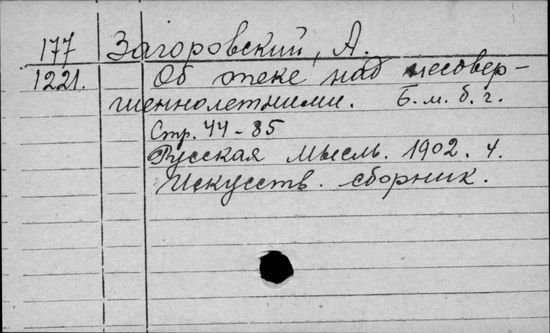 177 Загоровский, А.
1221. Об опеке над несовер-
шеннолетними. Б. м. б. г.
Стр. 44-85
Русская Мысль. 1902. 4.
Искусств. сборник.